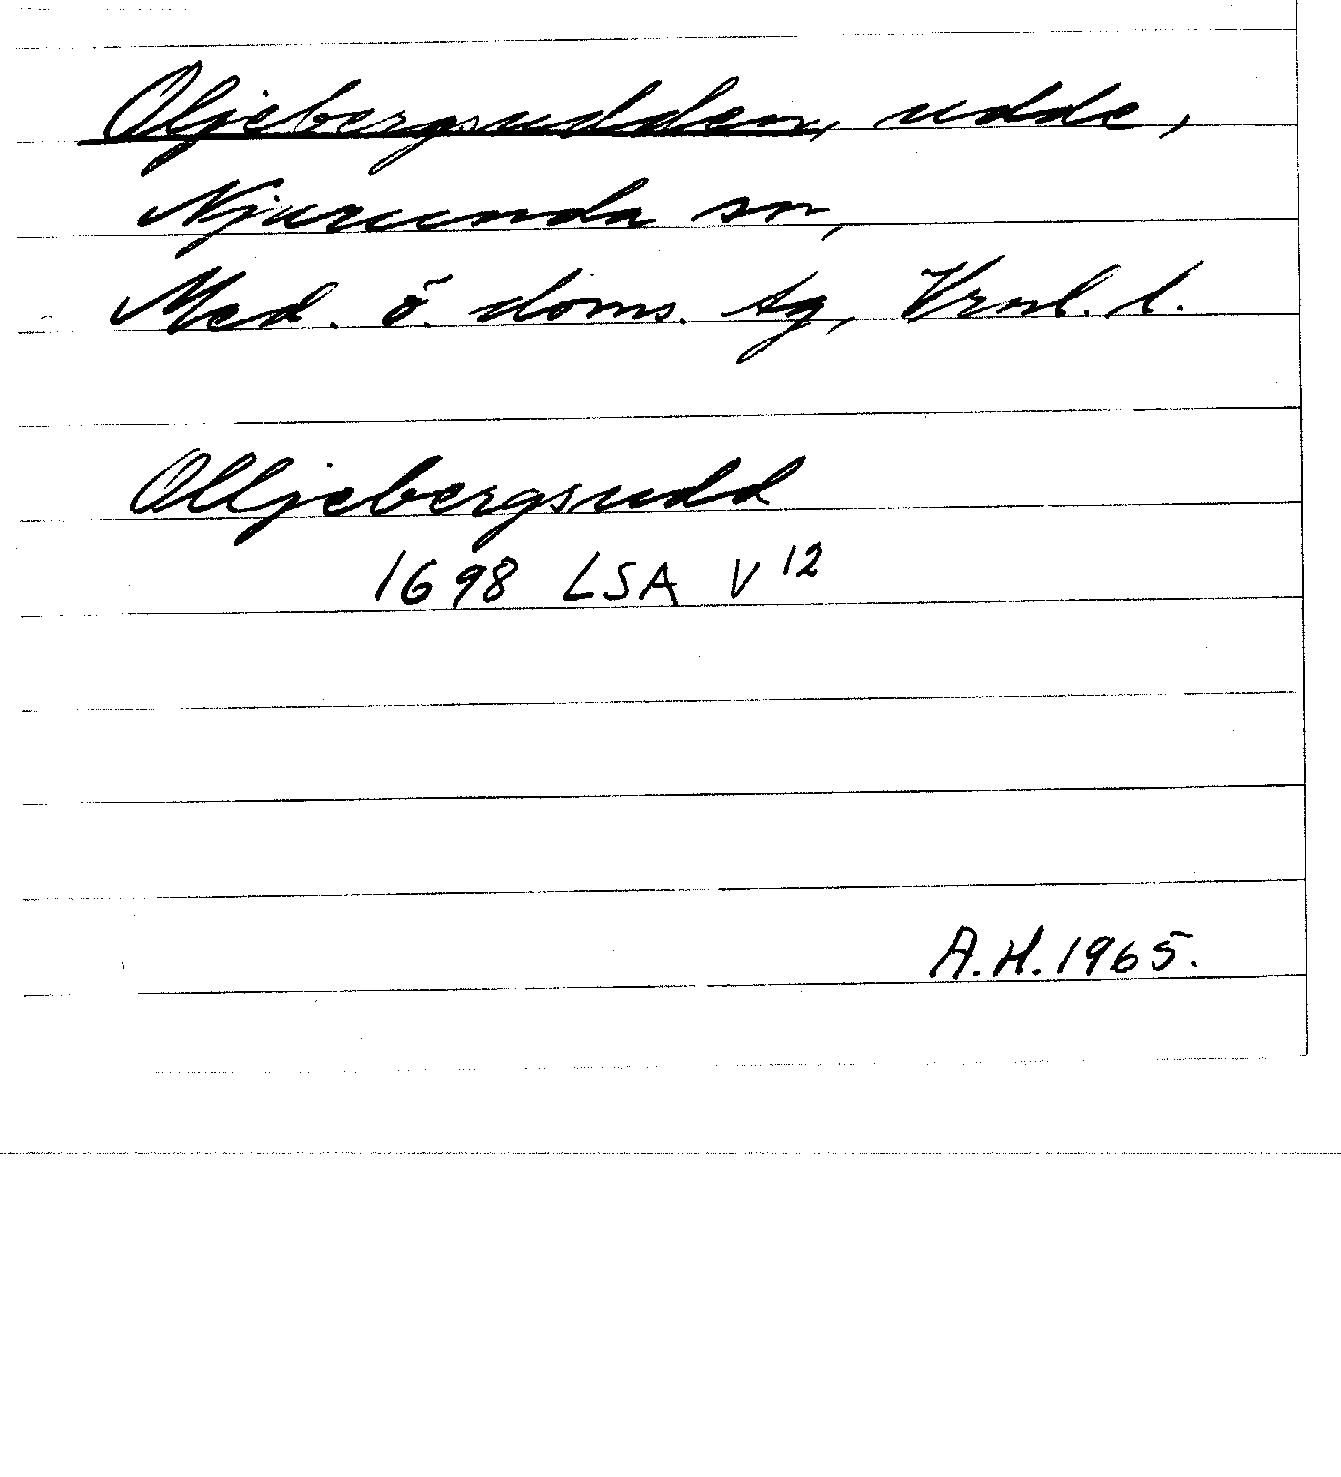 Oljebergsudden, udde,
Njurunda sn,
Med. ö. doms. tg, Vrnl. l.
Olljebergsudd
1698 LSA V 12
A.H. 1965.